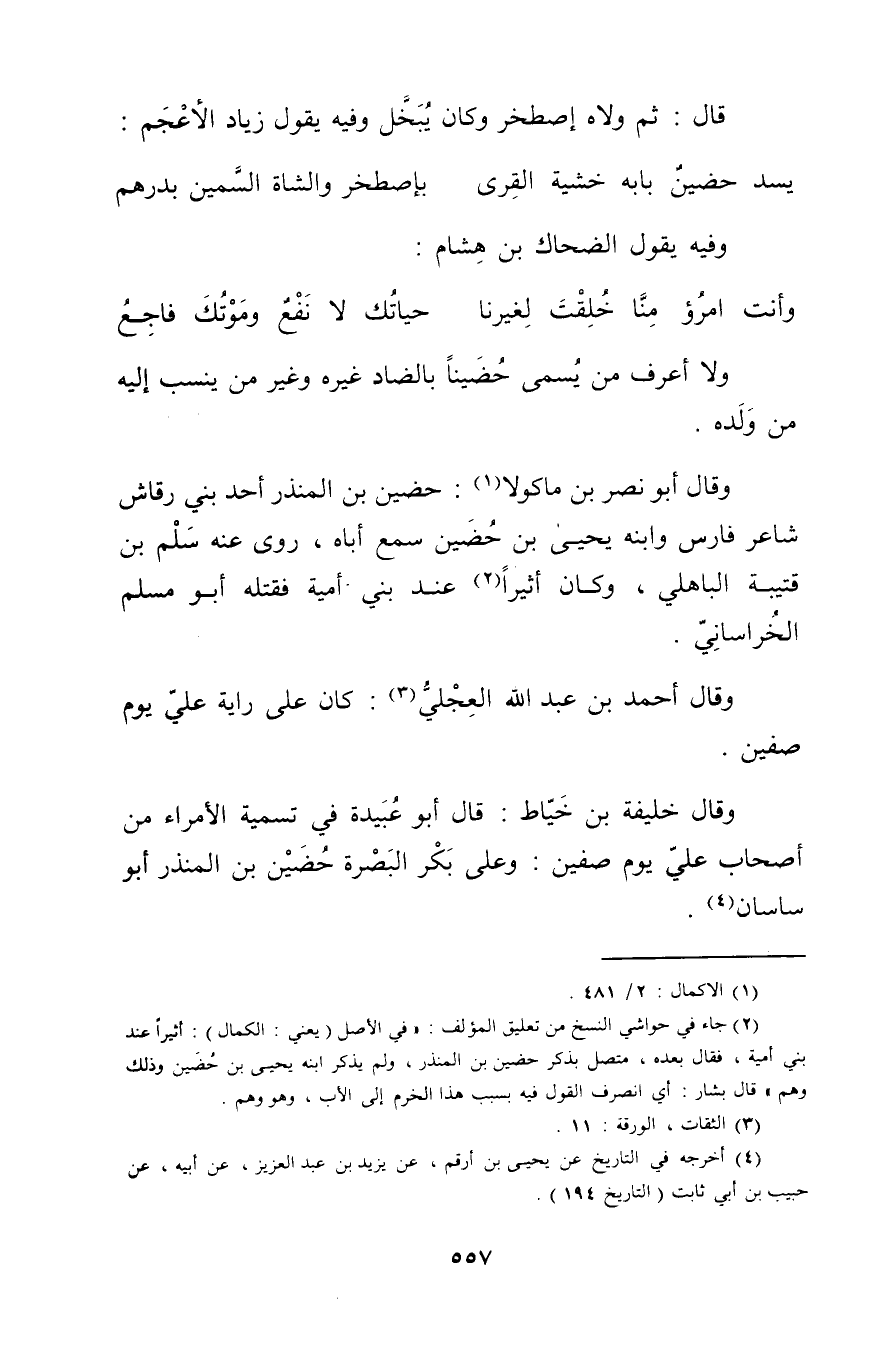 قال : ثم ولاه إصطخر وكان يُبَخَّل وفيه يقول زياد الأعْجَم :
يسد حضينٌ بابه خشية القِرى بإصطخر والشاة السَّمين بدرهم
وفيه يقول الضحاك بن هِشام :
وأنت امرُؤ مِنَّا خُلِقْتَ لِغيرنا حياتُك لا نَفْعٌ ومَوْتُكَ فاجِعُ
ولا أعرف من يُسمى حُضَيناً بالضاد غيره وغير من ينسب إليه
من وَلَده .
وقال أبو نصر بن ماكولا(١) : حضين بن المنذر أحد بني رقاش
شاعر فارس وابنه يحيىٰ بن حُضَين سمع أباه ، روى عنه سَلْم بن
قتيبة الباهلي ، وكان أثيراً(٢) عند بني أمية فقتله أبو مسلم
الخُراسانِيّ .
وقال أحمد بن عبد الله العِجْليُّ(٣) : كان على راية عليّ يوم
صفين .
وقال خليفة بن خَيّاط : قال أبو عُبَيدة في تسمية الأمراء من
أصحاب عليّ يوم صفين : وعلى بَكْر البَصْرة حُضَيْن بن المنذر أبو
ساسان(٤) .
(١) الاكمال : ٢/ ٤٨١ .
(٢) جاء في حواشي النسخ من تعليق المؤلف : « في الأصل ( يعني : الكمال ) : أثيراً عند
بني أمية ، فقال بعده ، متصل بذكر حضين بن المنذر ، ولم يذكر ابنه يحيى بن حُضَين وذلك
وهم » قال بشار : أي انصرف القول فيه بسبب هذا الخرم إلى الأب ، وهو وهم .
(٣) الثقات ، الورقة : ١١ .
(٤) أخرجه في التاريخ عن يحيى بن أرقم ، عن يزيد بن عبد العزيز ، عن أبيه ، عن
حبيب بن أبي ثابت ( التاريخ ١٩٤ ) .
٥٥٧